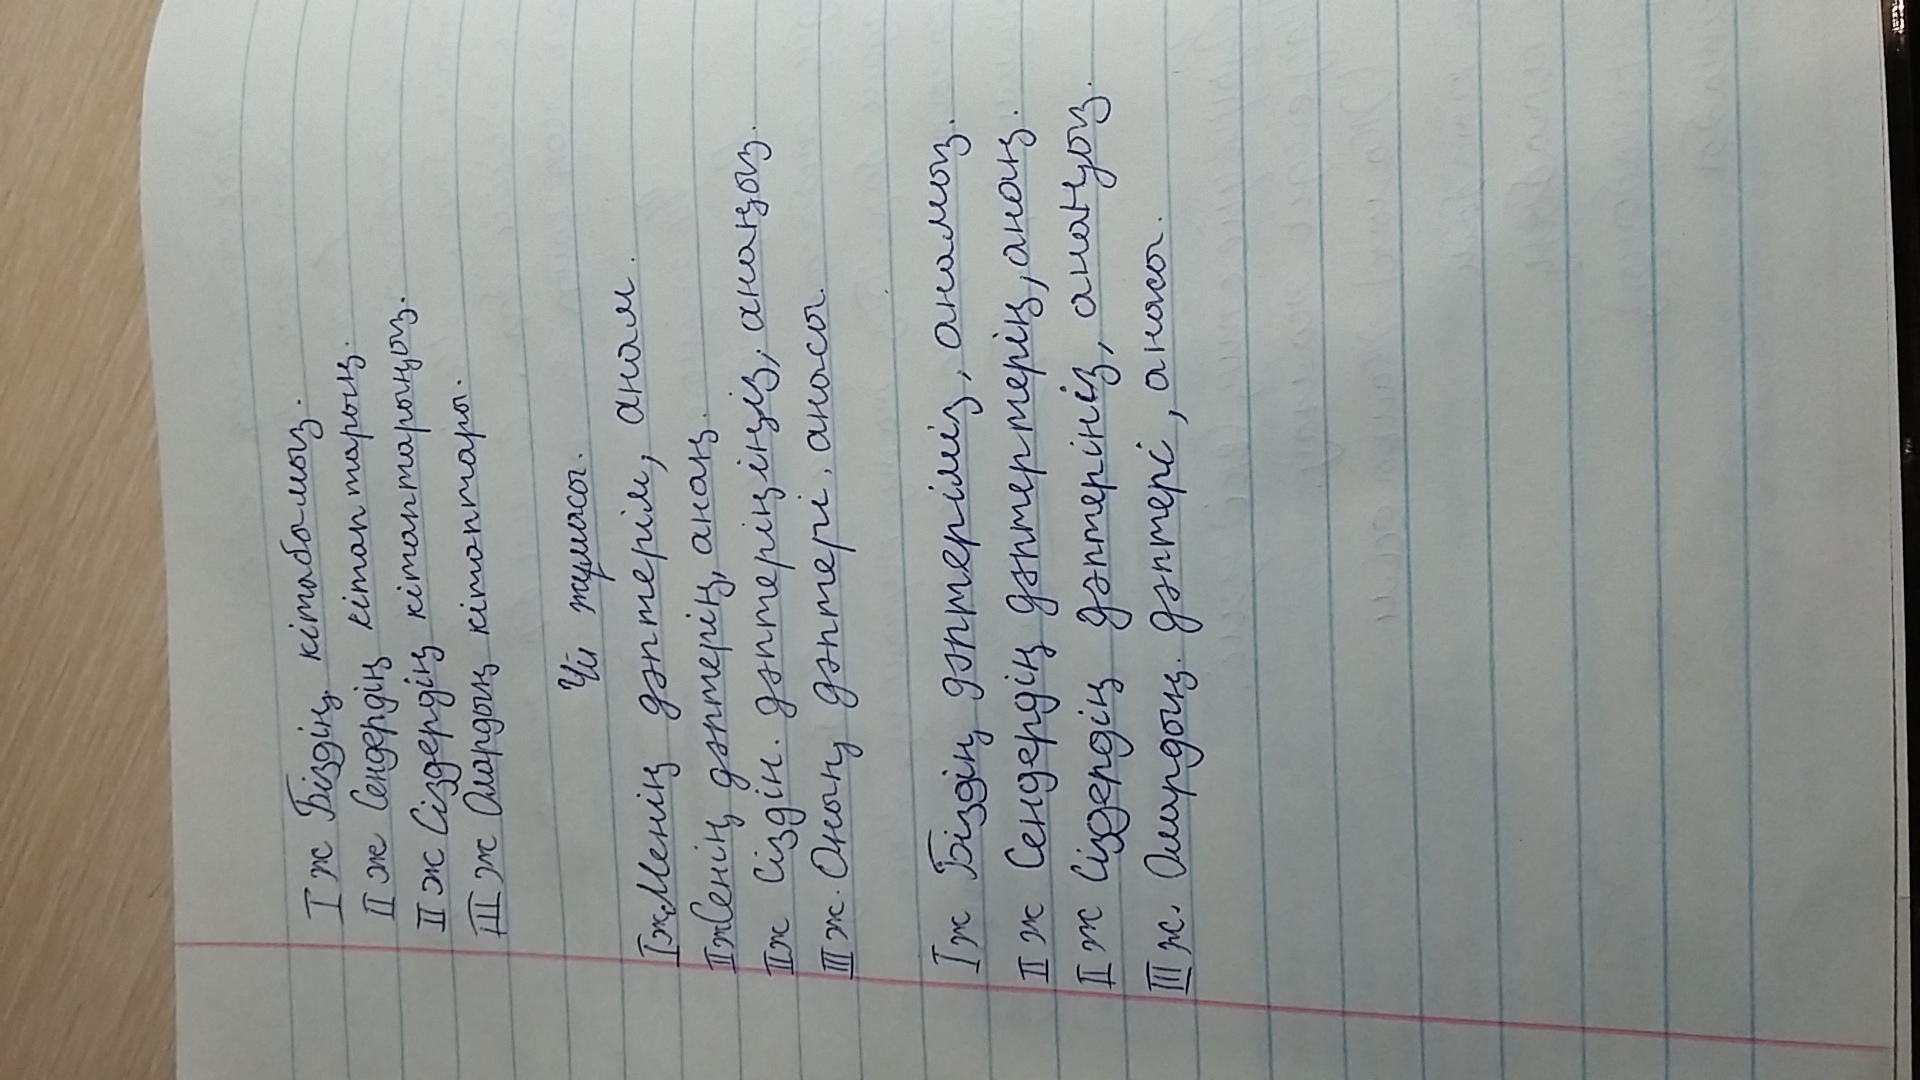 I ж Біздің кітабымыз.
II ж Сендердің кітаптарың.
II ж Сіздердің кітаптарыңыз.
III ж Олардың кітаптары.
Үй жұмысы.
I ж Менің дәптерім, анам.
II ж Сенің дәптерің, анаң.
II ж Сіздін. дәптеріңіңіз, анаңыз.
III ж. Оның дәптері, анасы.
I ж Біздің дәптеріміз, анамыз.
II ж Сендердің дәптертерің, анаң.
II ж Сіздердің дәптерініз, анаңыз.
III ж. Олардың. дәптері, анасы.